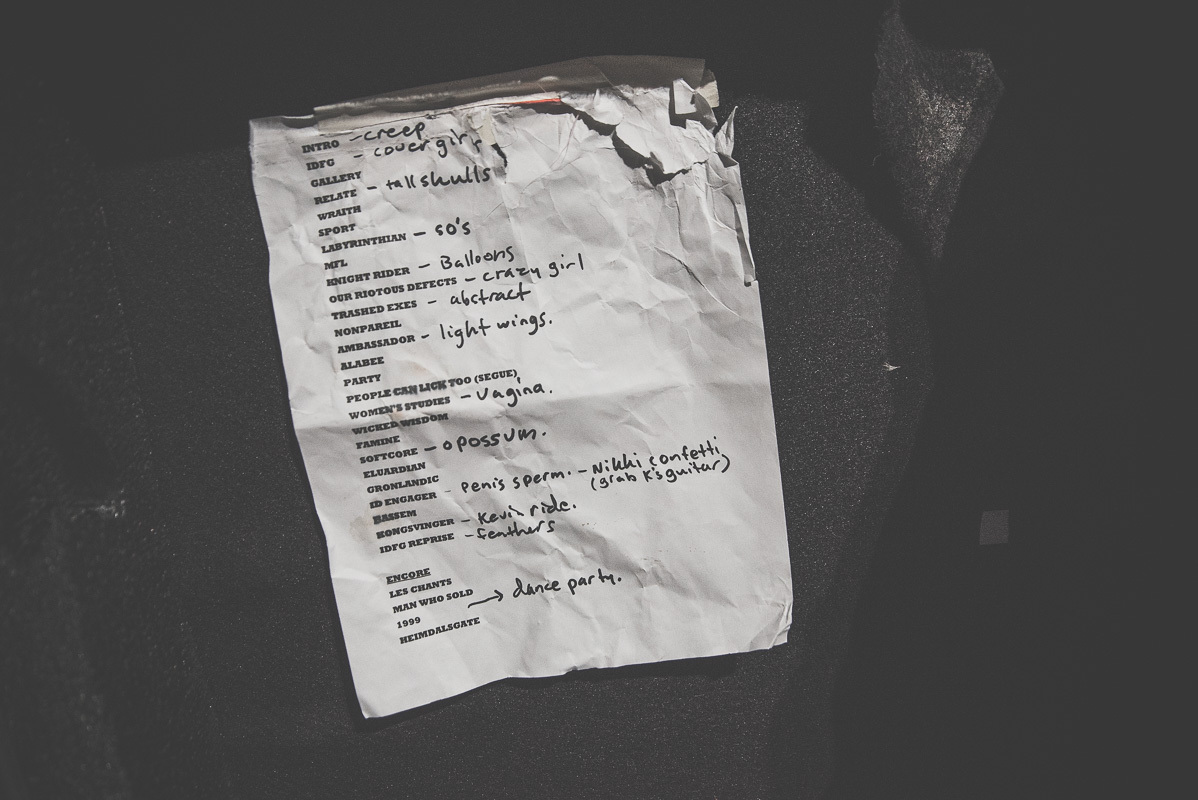 INTRO - creep
IDFG - cover girl
GALLERY
RELATE - tall skulls
WRAITH
SPORT
LABYRINTHIAN - 50's
MFL
KNIGHT RIDER - Balloons
OUR RIOTOUS DEFECTS - crazy girl
TRASHED EXES - abstract
NONPAREIL
AMBASSADOR - light wings.
ALABEE
PARTY
PEOPLE CAN LICK TOO (SEGUE)
WOMEN'S STUDIES - Vagina.
WICKED WISDOM
FAMINE
SOFTCORE - opossum.
ELUARDIAN
GRONLANDIC
ID ENGAGER - penis sperm. - Nikki confetti
(grab K's guitar)
BASSEM
KONGSVINGER - Kevin ride.
IDFG REPRISE - feathers
ENCORE
LES CHANTS
MAN WHO SOLD → dance party.
1999
HEIMDALSGATE